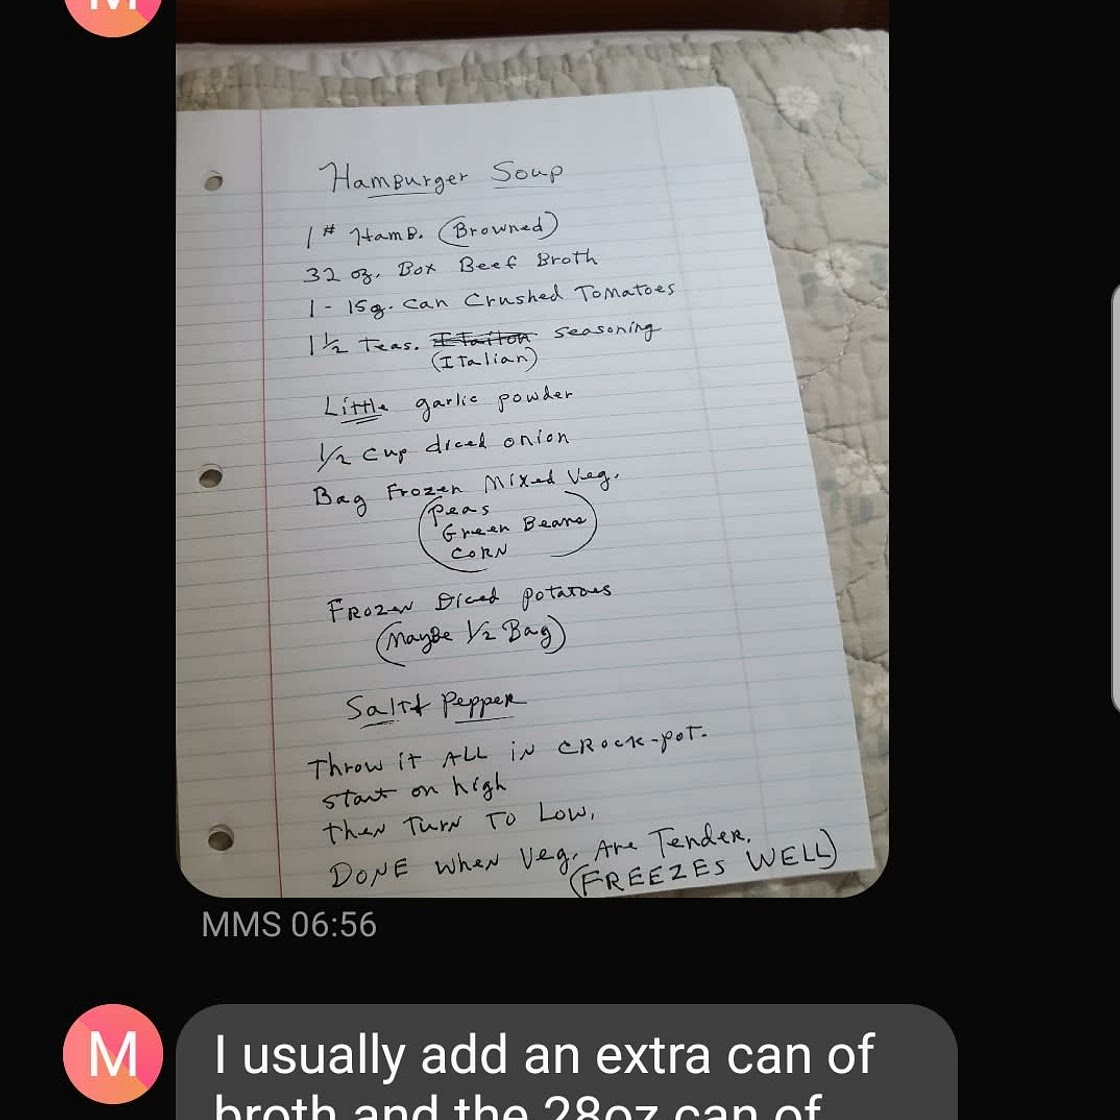 M
Hamburger Soup
1# Hamb. (Browned)
32 oz. Box Beef Broth
1 - 15g. can Crushed Tomatoes
1 1/2 Teas. seasoning
(Italian)
Little garlic powder
1/2 cup diced onion
Bag Frozen Mixed Veg.
(Peas
Green Beans
CORN)
FROZEN Diced potatoes
(Maybe 1/2 Bag)
Salt + Pepper
Throw it ALL in CROCK-POT.
start on high
then Turn To Low,
DONE when Veg. Are Tender.
(FREEZES WELL)
MMS 06:56
M
I usually add an extra can of
broth and the 28oz can of